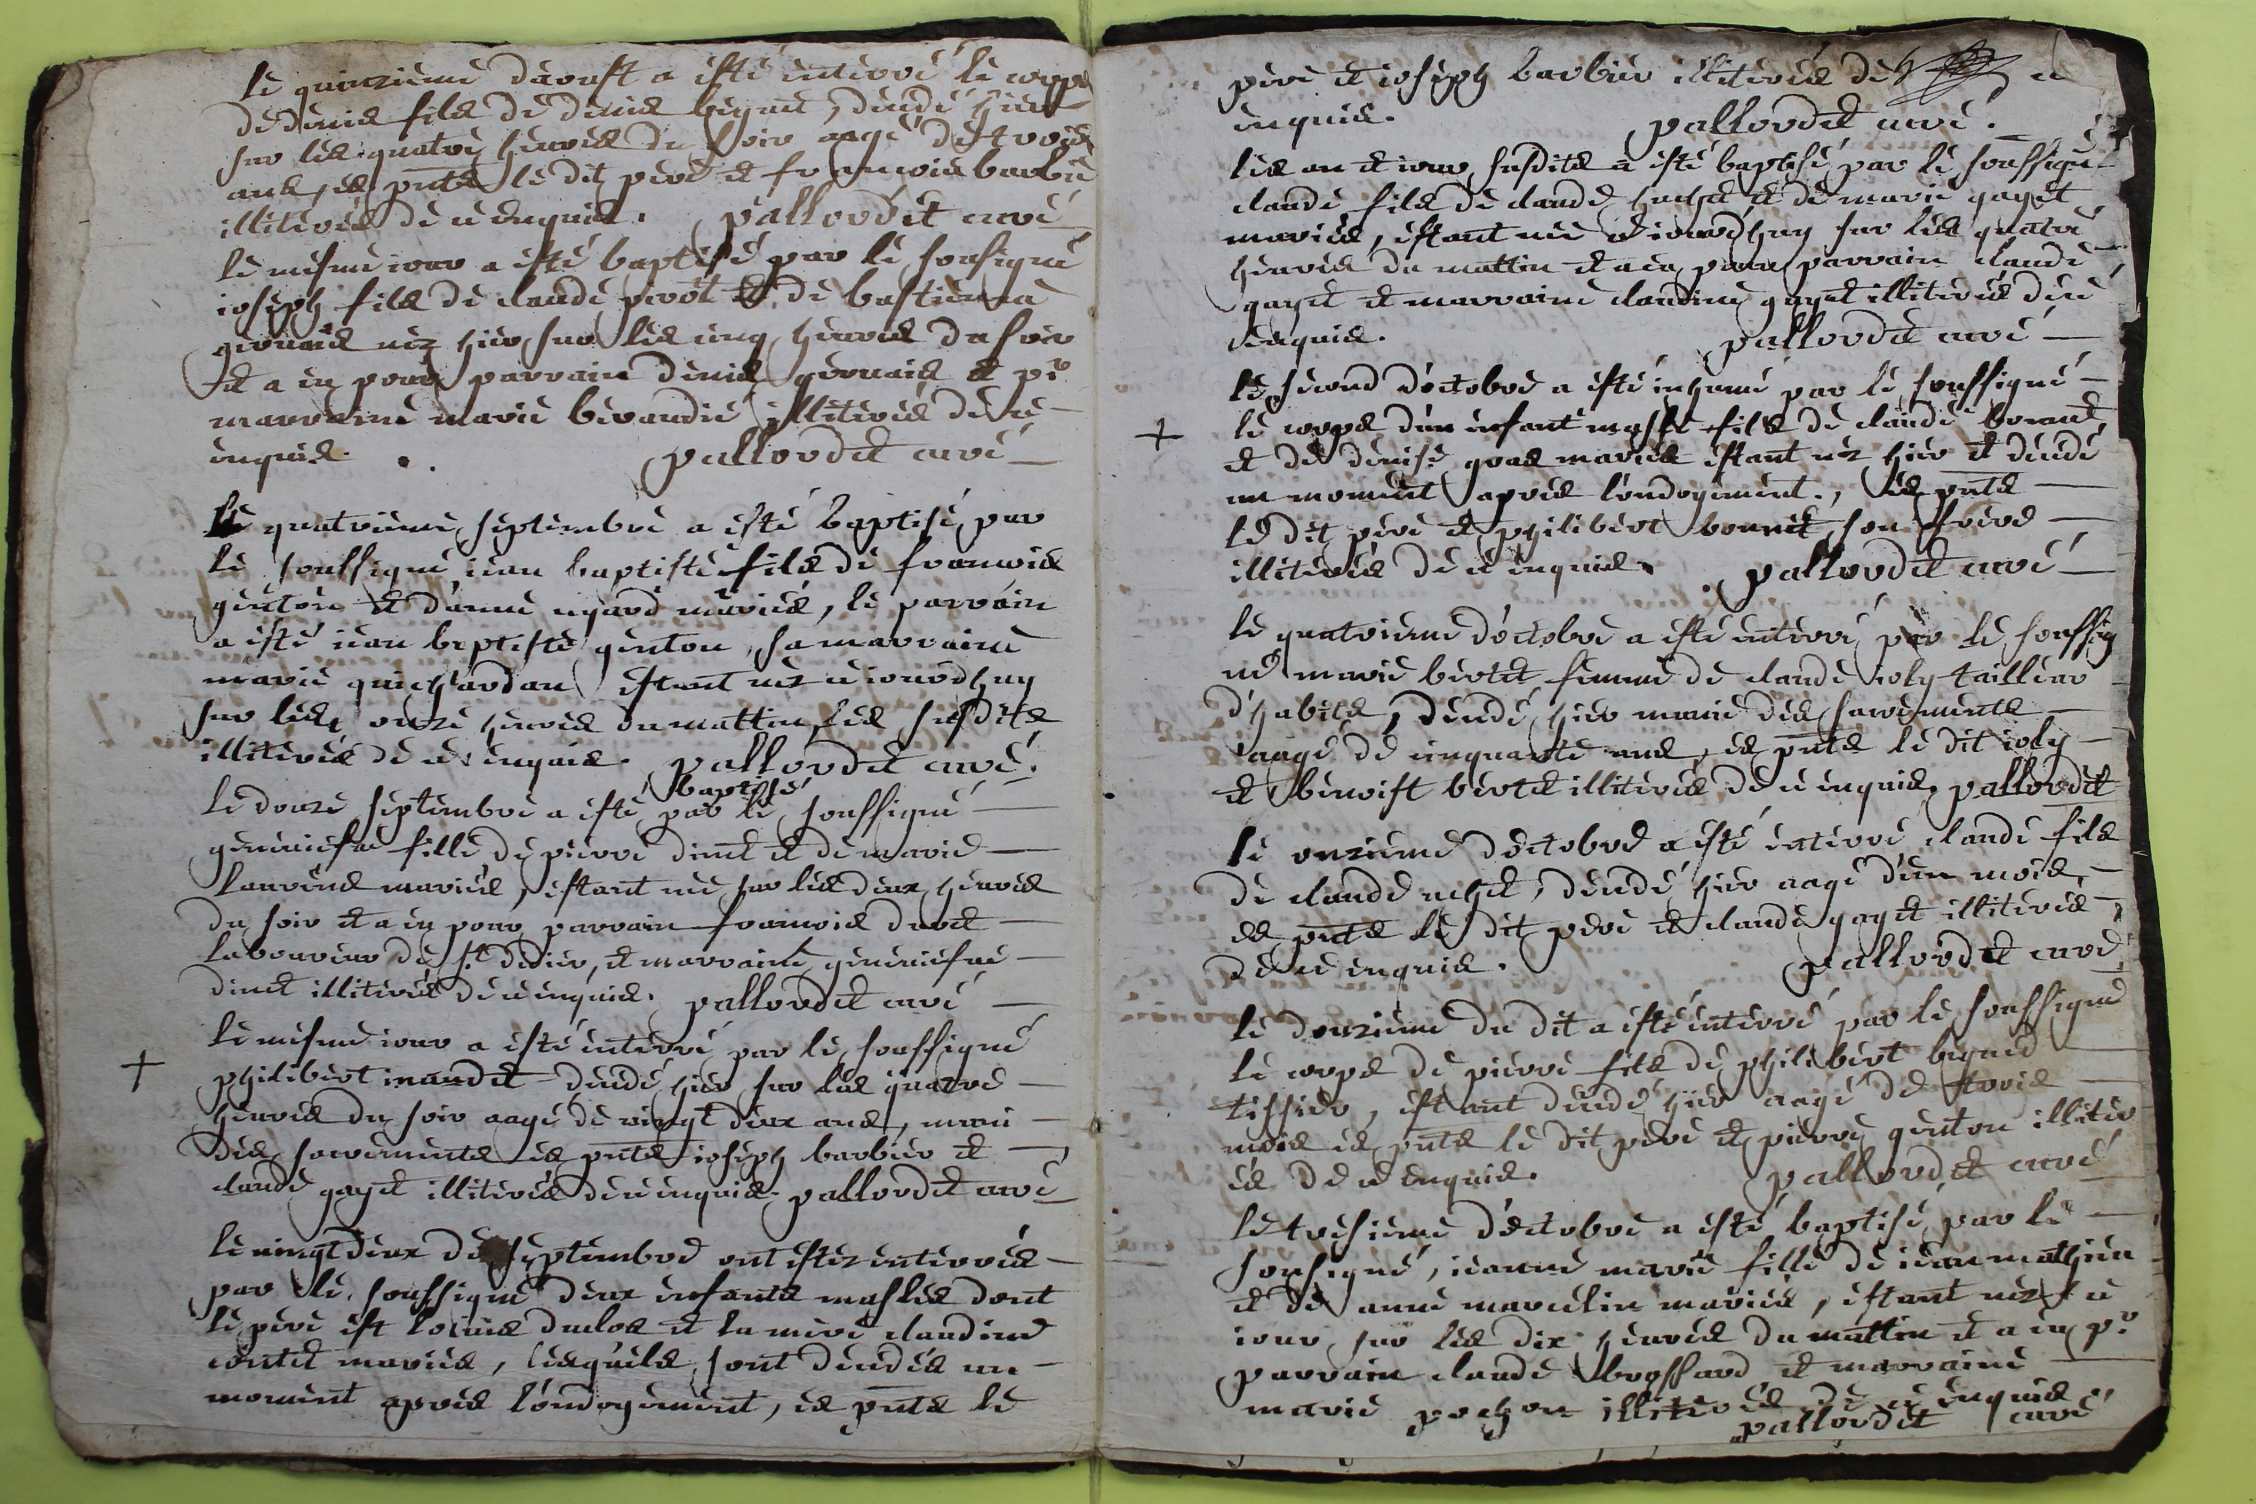 le quinzieme d'aoust a esté enterré le corps
de denis fils de denis begnie, deudé hier
sur les quatre heures du soir aagé de trois
ans, es pnts le dit pere et francois barbie
illiterés de ce enquis. pallordet curé
le mesme iour a esté baptisé par le sousigné
ioseph fils de claude pirot et de bastienna
geruais néz hier sur les cinq heures du soir
et a eu pour parrain denis geruais et pr
marraine marie beraudié illiterés de ce
enquis. pallordet curé
le quatrieme septembre a esté baptisé par
le soussigné iean baptiste fils de francois
genton et d'anne ngard mariés, le parrain
a esté iean baptiste genton, sa marraine
marie guichardan estant néz ce iourdhuy
sur les onze heures du mattin, les susdits
illiterés de ce enquis. pallordet curé.
baptisé
le douze septembre a esté par le soussigné
geneuiefue fille de pierre dinet et de marie
laurens mariés, estant née sur les deux heures
du soir et a eu pour parrain francois duret
laboureur de st didier, et marraine geneuiefue
dinet illiterés de ce enquis. pallordet curé
le mesme iour a esté enterré par le soussigné
philibert deudé hier sur les quatre
heures du soir aagé de vingt deux ans, muni
des sacrements es pnts ioseph barbier et
claude gayet illiterés de ce enquis. pallordet curé
le vingt deux de septembre ont estéz enterrés
par le soussigné deux enfants masles dont
le pere est louis duclos et la mere claudine
contet mariés, lesquels sont deudés un
moment apres l'ondoyement, es pnts le
pere et ioseph barbier illiterés de ce
enquis. pallordet curé.
les an et iour susdits a esté baptisé par le soussigné
claude fils de claude huchet et de marie gayet
mariés, estant née ce iourdhuy sur les quatre
heures du mattin et a eu pour parrain claude
gayet et marraine claudine gayet illiterés de ce
enquis. pallordet curé
le second d'octobre a esté inhumé par le soussigné
le corps d'un enfant masle fils de claude bonnet
et de denise gras mariés estant néz hier et deudé
un moment apres l'ondoyement., es pnts
le dit pere et philibert bonnet son frere
illiterés de ce enquis. pallordet curé
le quatrieme d'octobre a esté enterré par le soussig
né marie bertet femme de claude ioly tailleur
d'habits, deudé hier munie des sacrements
aagé de cinquante ans, es pnts le dit ioly
et benoist bertet illiterés de ce enquis. pallordet
le onzieme d'octobre a esté enterré claude fils
de claude uchet, deudé hier aagé d'un mois,
es pnts le dit pere et claude gayet illiterés
de ce enquis. pallordet curé
le douzieme du dit a esté enterré par le soussigné
le corps de pierre fils de philibert begnie
tissier, estant deudé hier aagé de trois
mois es pnts le dit pere et pierre genton illiter
és de ce enquis. pallordet curé
le tresieme d'octobre a esté baptisé par le
sousigné, ieanne marie fille de iean mathieu
et de anne marcelin mariés, estant néz ce
iour sur les dix heures du mattin et a eu pr
parrain claude brossard et marraine
marie pochon illiterés de ce enquis.
pallordet curé